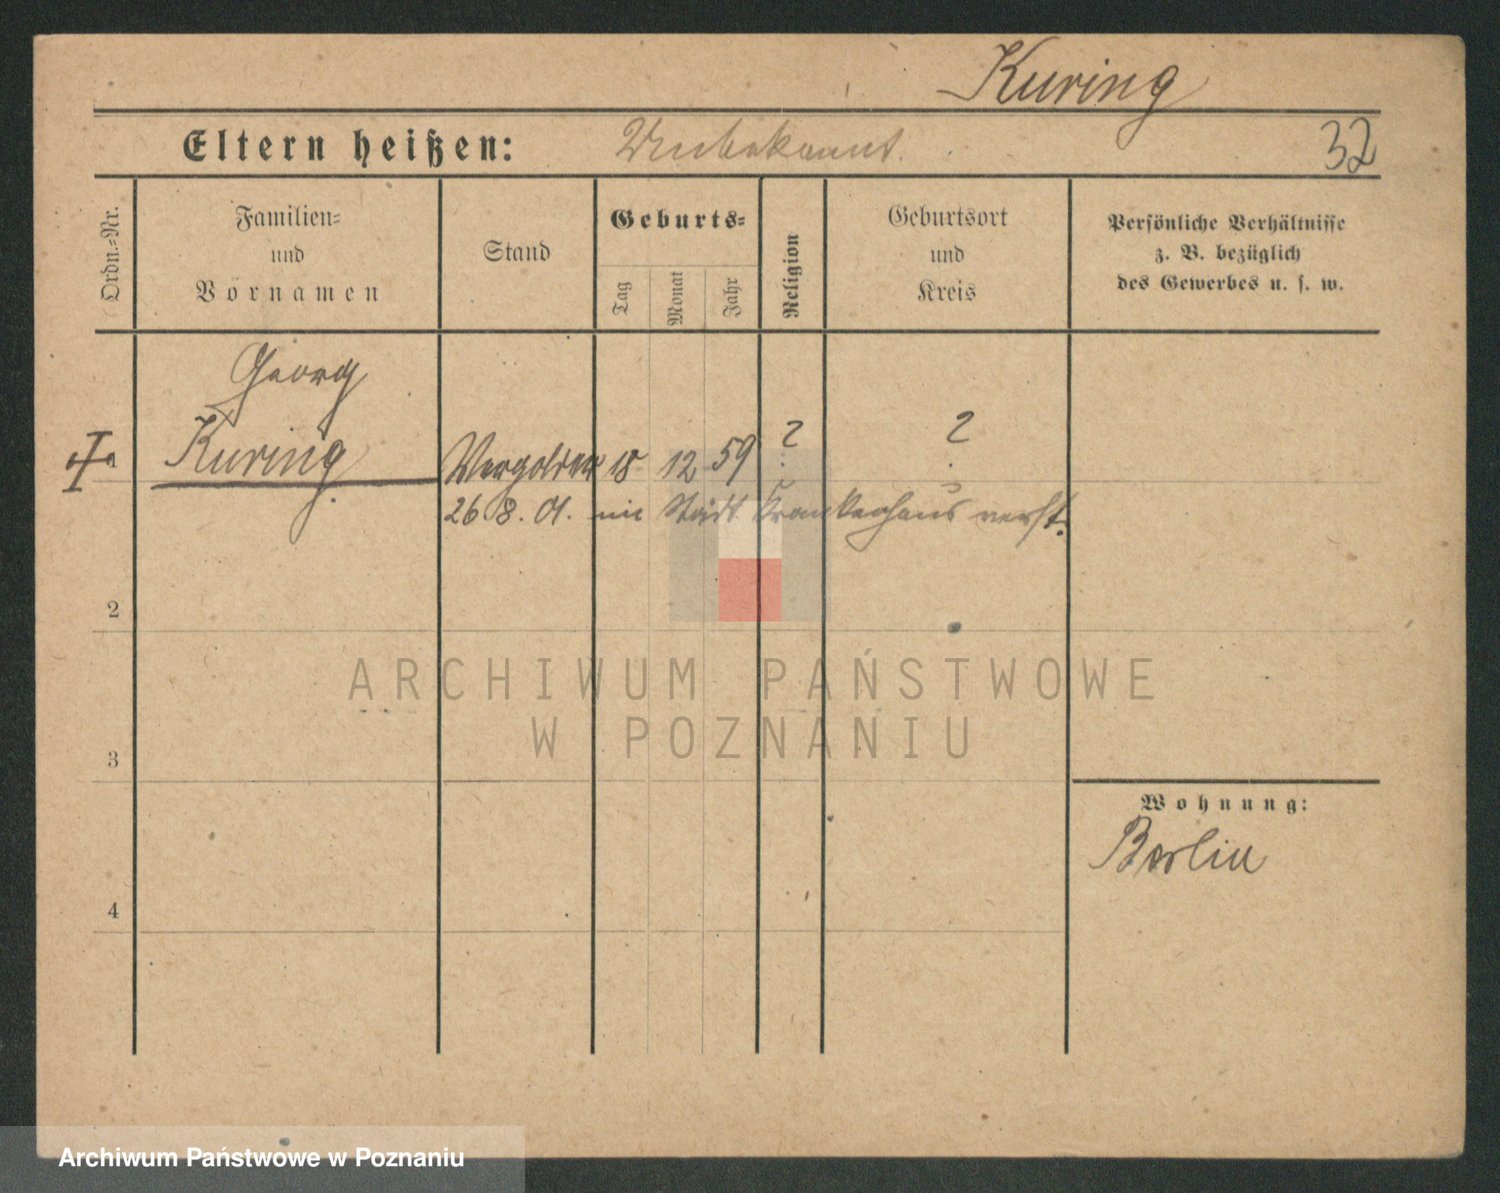 Kuring
Eltern heißen: Unbekannt.
32
Ordn.=Nr.
Familien=
und
Vornamen
Stand
Geburts=
Tag
Monat
Jahr
Religion
Geburtsort
und
Kreis
Persönliche Verhältnisse
z. B. bezüglich
des Gewerbes u. s. w.
Georg
1 Kuring Vergolder 18 12 59 ? ?
26.8.01. im Städt Krankenhaus verst.
2
3
4
Wohnung:
Berlin
ARCHIWUM PAŃSTWOWE
W POZNANIU
Archiwum Państwowe w Poznaniu